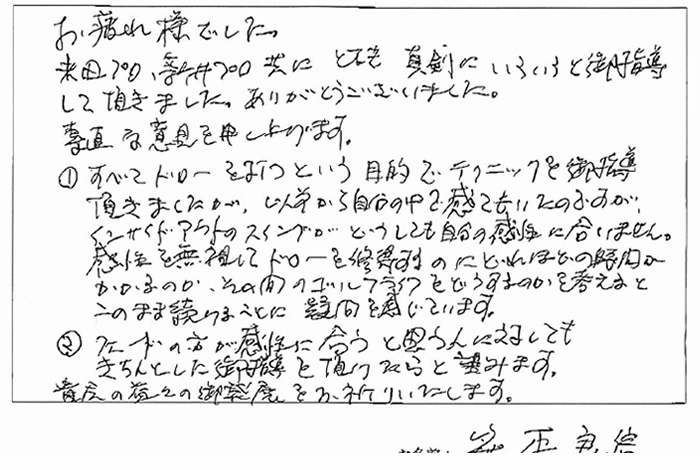 お疲れ様でした。
来田プロ、新井プロ共に とても 真剣に いろいろと御指導
して頂きました。ありがとうございました。
率直な意見を申し上げます。
① すべてドローを打つという目的でテクニックを御指導
頂きましたが、以前から自分の中で感じていたのですが、
インサイドアウトのスイングがどうしても自分の感性に合いません。
感性を無視してドローを修得するのにどれほどの時間が
かかるのか、その間のゴルフライフをどうするのかを考えると
このまま続けることに疑問を感じています。
② フェードの方が感性に合うと思う人に対しても
きちんとした御指導を頂けたらと望みます。
貴店の益々の御発展をお祈りいたします。